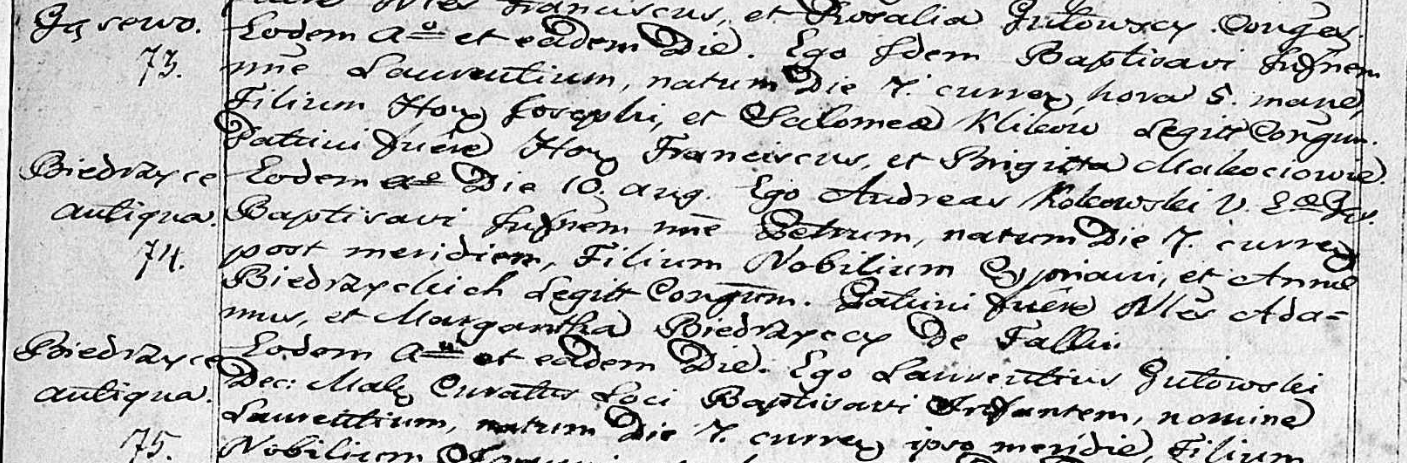 fuere Nles Franciscus, et Rosalia Gutowscy Conges.
Gąsewo. Eodem Ao et eadem Die. Ego Idem Baptisavi Infnem
73. nne Laurentium, natum Die 7. curren hora 5. mane,
Filium Hon Josephi, et Salomea Klikow Legitt Congum.
Patrini fuere Hon Franciscus, et Brigitta Makociowie.
Biedrzyce Eodem ao Die 10. aug. Ego Andreas Kokowski V.
antiqua. Baptisavi Infnem nne Petrum, natum Die 7. curren
74. post meridiem, Filium Nobilium Cypriani, et Annæ
Biedrzyckich Legitt Congum. Patrini fuere Nles Ada=
mus, et Margaritha Biedrzyccy De Falki.
Biedrzyce Eodem Ao et eadem Die. Ego Laurentius Gutowski
antiqua. Dec: Mak Curatus Loci Baptisavi Infantem, nomine
Laurentium, natum Die 7. curren ipso meridie, Filium
75. Nobilium